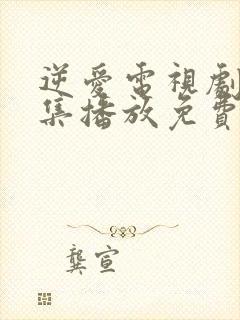 逆愛電視劇
集播放免費
龔宣